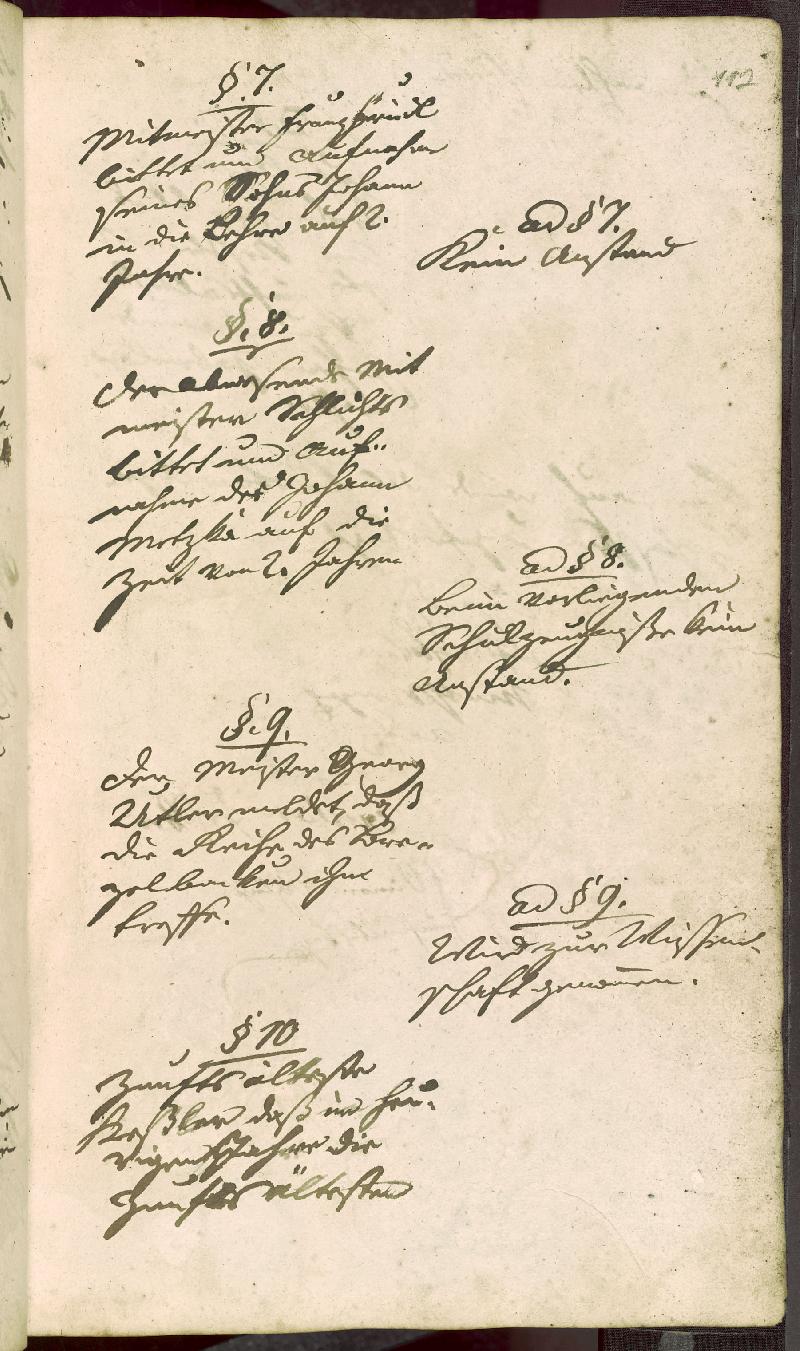 112
§ 7.
Mitmeister Franz
bittet um Aufnahme
seines Sohns Johann
in die Lehre auf 2.
Jahre.
ad § 7.
Kein Anstand
§. 8.
Der abwesende Mit
meister Schlichts
bittet um Auf-
nahme des Johann
Metzka auf die
Zeit von 2. Jahren
ad § 8.
Beim vorliegenden
Schulzeugniße kein
Anstand.
§. 9.
Der Meister Georg
Utler meldet, daß
die Reihe des Bre-
zelbacken ihm
treffe.
ad § 9.
Wird zur Wissen-
schaft genommen.
§ 10
Zunftsälteste
Keßler daß im heu-
rigen Jahre die
Zunfts ältesten